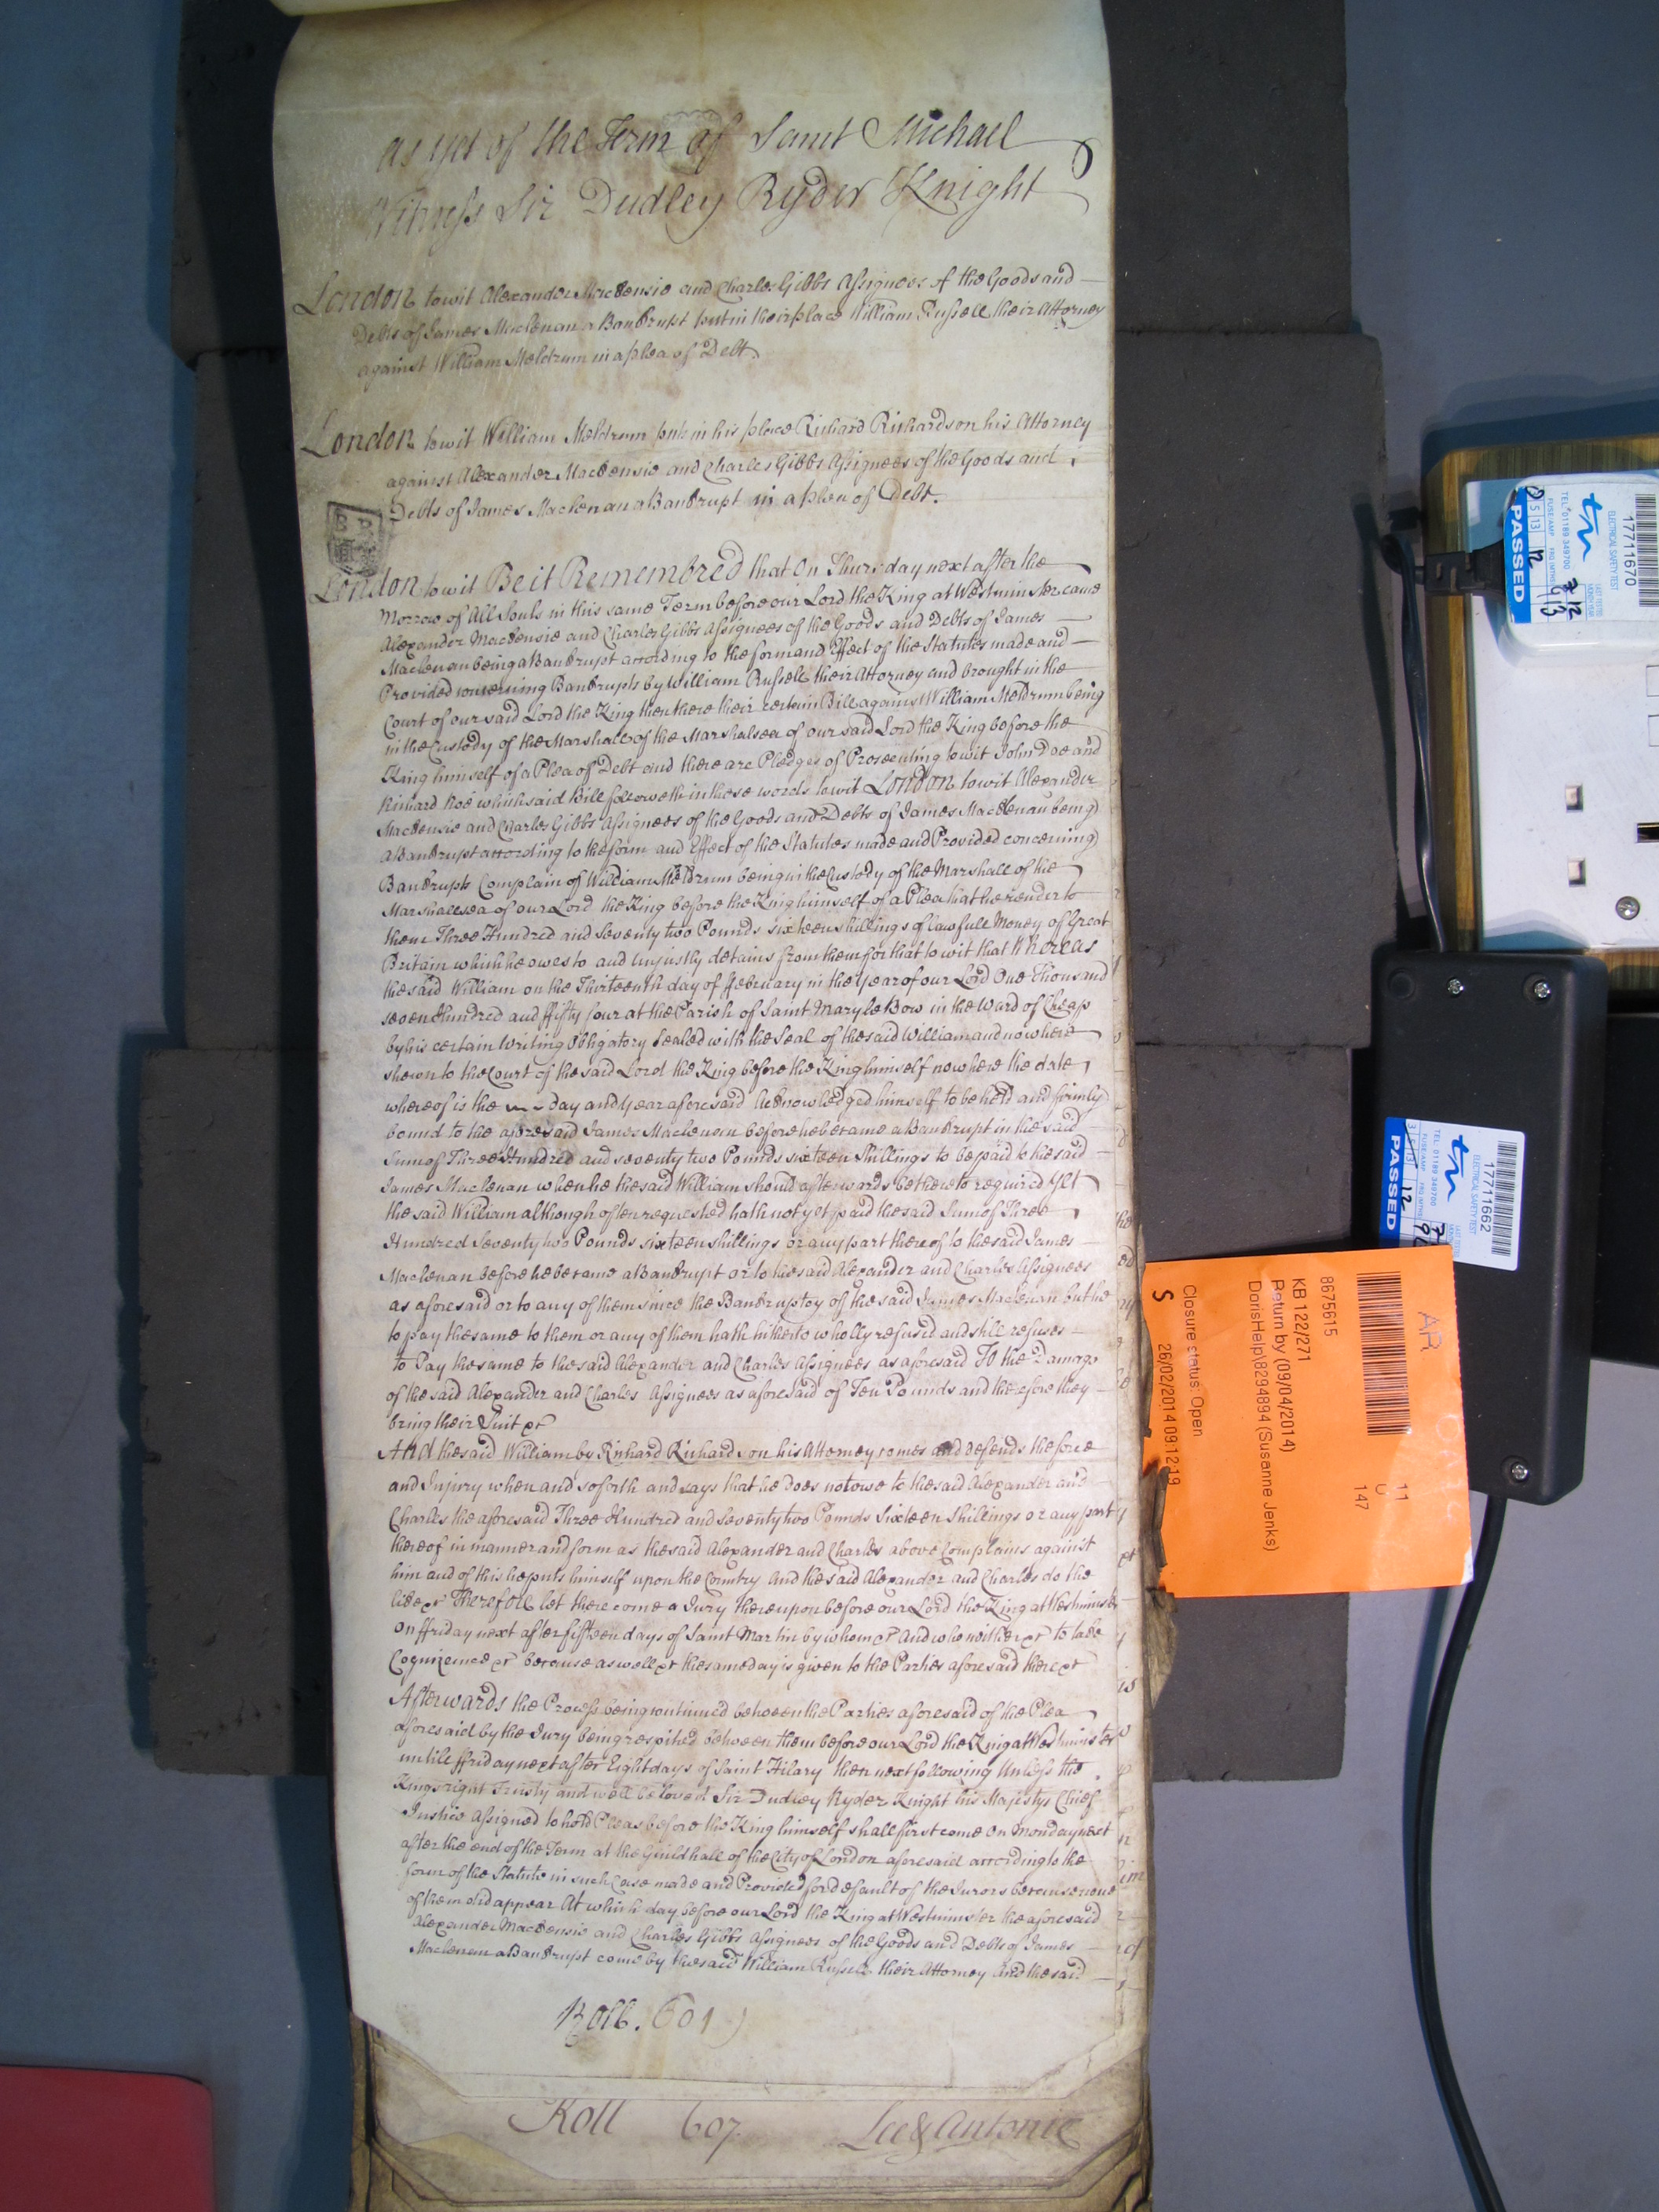 as yet of the Term of Saint Michael
Witness Sir Dudley Ryder Knight
London towit Alexander Mackensie and Charles Gibbs Assignees of the Goods and
Debts of James Maclenan a Bankrupt put in their place William Russell their Attorney
against William Meldrum in a plea of Debt
London towit William Meldrum puts in his place Richard Richardson his Attorney
against Alexander Mackensie and Charles Gibbs Assignees of the Goods and
Debts of James Maclenan a Bankrupt in a plea of Debt.
London towit Be it Remembred that On Thursday next after the
Morrow of All Souls in this same Term before our Lord the King at Westminster came
Alexander Mackensie and Charles Gibbs Assignees of the Goods and Debts of James
Maclenan being a Bankrupt according to the form and Effect of the Statutes made and
Provided concerning Bankrupts by William Russell their Attorney and brought in the
Court of our said Lord the King then there their certain Bill against William Meldrum being
in the Custody of the Marshall of the Marshalsea of our said Lord the King before the
King himself of a Plea of Debt and there are Pledges of Prosecuting towit John Doe and
Richard Roe which said Bill followeth in these words towit London towit Alexander
Mackensie and Charles Gibbs Assignees of the Goods and Debts of James Macklenan being
a Bankrupt according to the form and Effect of the Statutes made and Provided concerning
Bankrupts Complain of William Meldrum being in the Custody of the Marshall of the
Marshallsea of our Lord the King before the King himself of a Plea that he render to
them Three Hundred and Seventy two Pounds sixteen shillings of lawfull Money of Great
Britain which he owes to and unjustly detains from them for that to wit that Whereas
the said William on the Thirteenth day of ffebruary in the Year of our Lord One Thousand
seven Hundred and ffifty four at the Parish of Saint Mary le Bow in the Ward of Cheap
by his certain Writing Obligatory Sealed with the Seal of the said William and now here
shewn to the Court of the said Lord the King before the King himself now here the date
whereof is the day and Year aforesaid Acknowledged himself to be held and firmly
bound to the aforesaid James Maclenan before he became a Bankrupt in the said
Sum of Three Hundred and seventy two Pounds sixteen Shillings to be paid to the said
James Maclenan when he the said William should afterwards be thereto required Yet
the said William although often requested hath not yet paid the said Sum of Three
Hundred Seventy two Pounds sixteen shillings or any part thereof to the said James
Maclenan before he became a Bankrupt or to the said Alexander and Charles Assignees
as aforesaid or to any of them since the Bankruptcy of the said James Maclenan but the
to pay the same to them or any of them hath hitherto wholly refused and still refuses
to Pay the same to the said Alexander and Charles Assignees as aforesaid To the Damage
of the said Alexander and Charles Assignees as aforesaid of Ten Pounds and therefore they
bring their Suit &c
And the said William by Richard Richardson his Attorney comes and defends the force
and Injury when and soforth and says that he does not owe to the said Alexander and
Charles the aforesaid Three Hundred and seventy two Pounds Sixteen Shillings or any part
thereof in manner and form as the said Alexander and Charles above Complains against
him and of this he puts himself upon the Country And the said Alexander and Charles do the
like &c Therefore let there come a Jury thereupon before our Lord the King at Westminster
on ffriday next after fifteen days of Saint Martin by whom &c And who neither &c to take
Cognizance &c because as well &c the same day is given to the Parties aforesaid there &c
Afterwards the Process being continued between the Parties aforesaid of the Plea
aforesaid by the Jury being respited between them before our Lord the King at Westminster
untill ffriday next after Eight days of Saint Hilary then next following Unless the
Kings right Trusty and well beloved Sir Dudley Ryder Knight his Majestys Chief
Justice Assigned to hold Pleas before the King himself shall first come on Monday next
after the end of the Term at the Guildhall of the City of London aforesaid according to the
form of the Statute in such Case made and Provided for default of the Jurors because none
of them did appear At which day before our Lord the King at Westminster the aforesaid
Alexander Mackensie and Charles Gibbs Assignees of the Goods and Debts of James
Maclenan a Bankrupt come by the said William Russell their Attorney And the said
Roll. 601
Roll 607 Lee & Antonie
AR
8675615
KB 122/271
Return by (09/04/2014)
DorisHelp\8294894 (Susanne Jenks)
Closure status: Open
S 26/02/2014 09:12:19
11
U
147
1771670
ELECTRICAL SAFETY TEST
TEL: 01189 349700
PASSED
17711662
ELECTRICAL SAFETY TEST
TEL: 01189 349700
PASSED